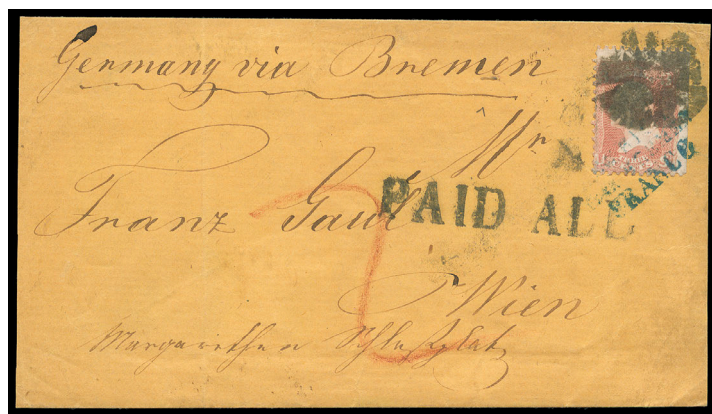 Germany via Bremen
Mr
Franz Gaul
PAID ALL
FRANCO
2
Wien
Margarethen Schloßplatz